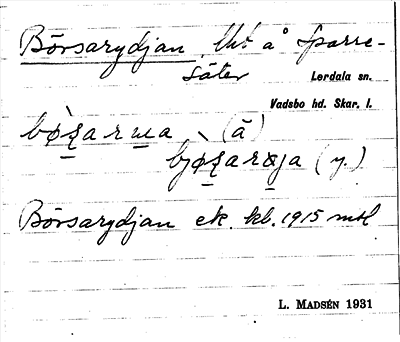 Börsarydjan, Uht å Sparre-
säter Lerdala sn.
Vadsbo hd. Skar. l.
(ä)
(y.)
Börsarydjan ek. kb. 1915 mtl
L. MADSÉN 1931